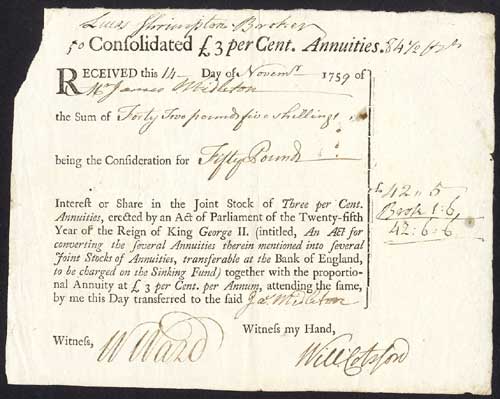 Shrimpton Broker
50 Consolidated £ 3 per Cent. Annuities. 84½
RECEIVED this 14 Day of Novemr 1759 of
Mr James Midleton
the Sum of Forty Two pounds five shillings
being the Consideration for Fifty Pounds
Interest or Share in the Joint Stock of Three per Cent.
Annuities, erected by an Act of Parliament of the Twenty-fifth
Year of the Reign of King George II. (intitled, An Act for
converting the several Annuities therein mentioned into several
Joint Stocks of Annuities, transferable at the Bank of England,
to be charged on the Sinking Fund) together with the proportio-
nal Annuity at £ 3 per Cent. per Annum, attending the same,
by me this Day transferred to the said Jas. Midleton
42 " 5
Brok 1:6
42:6:6
Witness my Hand,
Witness, W Ward
Will